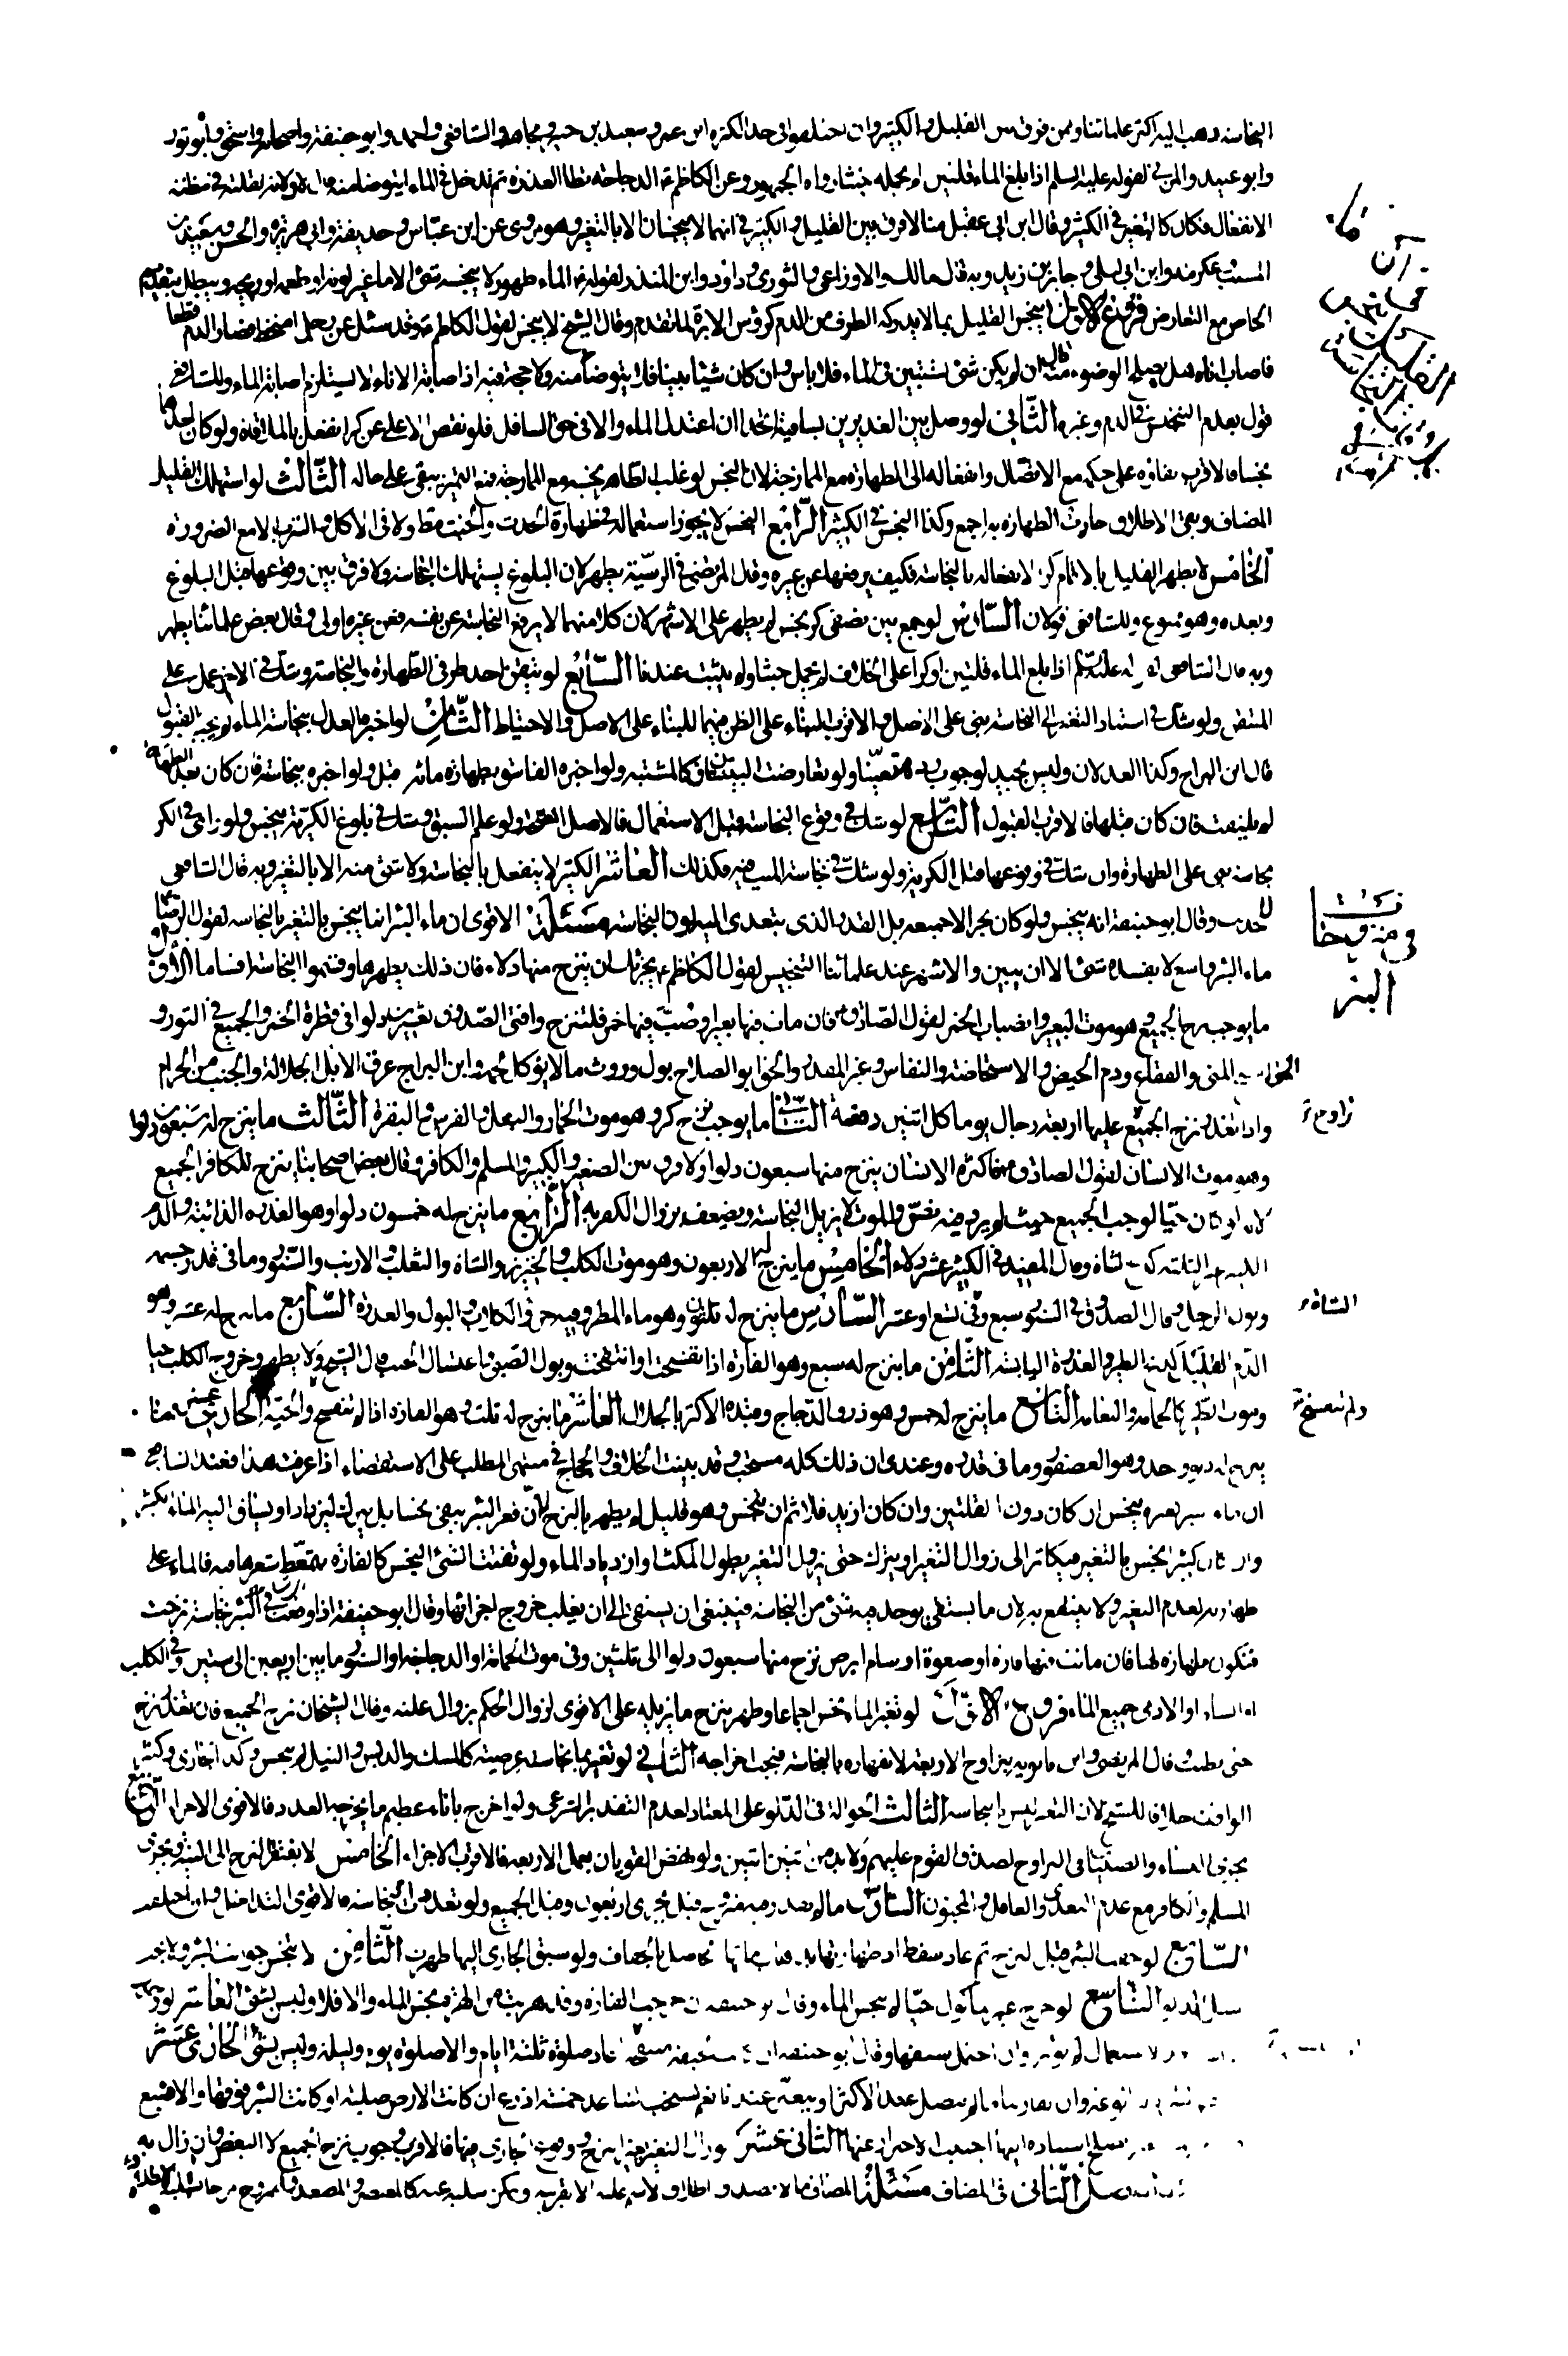 النجاسة ذهب اليه اكثر علمائنا وممن فرق بين القليل والكثير وان اختلفوا في حد الكثرة ابن عمر وسعيد بن جبير ومجاهد والشافعي واحمد وابو حنيفة واصحابه واسحق وابو ثور
وابو عبيد والمزني لقوله عليه السلم اذا بلغ الماء قلتين لم يحمل خبثا رواه الجمهور وعن الكاظم ع الدجاجة تطأ العذرة ثم تدخل في الماء ايتوضأ منه قال لا ولانه لقلته في مظنة
الانفعال فكان كالتغير في الكثير وقال ابن ابي عقيل منا لا فرق بين القليل والكثير في انهما لا ينجسان الا بالتغير وهو مروي عن ابن عباس وحذيفة وابي هريرة والحسن وسعيد بن
المسيب وعكرمة وابن ابي ليلى وجابر بن زيد وبه قال مالك والاوزاعي والثوري وداود وابن المنذر لقوله ع الماء طهور لا ينجسه شئ الا ما غير لونه او طعمه او ريحه ويبطل بتقديم
الخاص مع التعارض فروع الاول ينجس القليل بما لا يدركه الطرف من الدم كرؤس الابر لما تقدم وقال الشيخ لا ينجس لقول الكاظم ع وقد سئل عن رجل امتخط فصار الدم قطعا
فاصاب اناءه هل يصلح الوضوء منه قال ان لم يكن شئ يستبين في الماء فلا باس وان كان شيئا بينا فلا يتوضأ منه ولا حجة فيه اذ اصابة الاناء لا يستلزم اصابة الماء وللشافعي
قول بعدم التنجيس في الدم وغيره الثاني لو وصل بين الغديرين بساقية اتحدا ان اعتدل الماء والا في حق السافل فلو نقص الاعلى عن كر انفعل بالملاقاة ولو كان احدهما
نجسا فالاقرب بقاؤه على حكمه مع الاتصال وانتقاله الى الطهارة مع الممازجة لان النجس لو غلب الطاهر ينجسه مع الممازجة فمع التميز يبقى على حاله الثالث لو استهلك القليل
المضاف وبقي الاطلاق جازت الطهارة به اجمع وكذا النجس في الكثير الرابع النجس لا يجوز استعماله في طهارة الحدث والخبث مطلقا ولا في الاكل والشرب الا مع الضرورة
الخامس لا يطهر القليل بالاتمام كرا لانفعاله بالنجاسة فكيف يرفعها عن غيره وقال المرتضى في الرسية يطهر لان البلوغ يستهلك النجاسة ولا فرق بين وقوعها قبل البلوغ
وبعده وهو ممنوع وللشافعي قولان السادس لو جمع بين نصفي كر نجس لم يطهر على الاشهر لان كلا منهما لا يرفع النجاسة عن نفسه فعن غيره اولى وقال بعض علمائنا يطهر
وبه قال الشافعي لقوله عليه السلم اذا بلغ الماء قلتين او كرا على الخلاف لم يحمل خبثا ولم يثبت عندنا السابع لو تيقن احد طرفي الطهارة والنجاسة وشك في الاخر عمل على
المتيقن ولو شك في استناد التغير الى النجاسة بنى على الاصل والاقرب البناء على الظن فيهما للبناء على الاصل والاحتياط الثامن لو اخبره العدل بنجاسة الماء لم يجب القبول
قال ابن البراج وكذا العدلان وليس بجيد لوجوب رده معيبا ولو تعارضت البينتان فكالمشتبه ولو اخبره الفاسق بطهارة مائه قبل ولو اخبره بنجاسته فان كان بعد الطهارة
لم يلتفت فان كان قبلها فالاقرب القبول التاسع لو شك في وقوع النجاسة قبل الاستعمال فالاصل الصحة ولو علم السبق وشك في بلوغ الكرية ينجس ولو راى في الكر
نجاسة بنى على الطهارة وان شك في وقوعها قبل الكرية ولو شك في نجاسة الميت فيه فكذلك العاشر الكثير لا ينفعل بالنجاسة ولا شئ منه الا بالتغير وبه قال الشافعي
للحديث وقال ابو حنيفة انه ينجس ولو كان بحرا لا جميعه بل القدر الذي يتعدى اليه لون النجاسة مسئلة الاقوى ان ماء البئر انما ينجس بالتغير بالنجاسة لقول الرضا ع
ماء البئر واسع لا يفسده شئ الا ان يتغير والاشهر عند علمائنا التنجيس لقول الكاظم ع يجزيك ان ينزح منها دلاء فان ذلك يطهرها وقسموا النجاسة اقساما الاول
ما يوجب نزح الجميع وهو موت البعير وانصباب الخمر لقول الصادق ع فان مات فيها بعير او صب فيها خمر فلتنزح وافتى الصدوق بعشرين دلوا في قطرة الخمر والجميع في الثور و
المني والفقاع ودم الحيض والاستحاضة والنفاس وغير المقدر والحق ابو الصلاح بول وروث ما لا يؤكل لحمه وابن البراج عرق الابل الجلالة والجنب من الحرام
واذا تعذر نزح الجميع عليها اربعة رجال يوما كل اثنين دفعة الثاني ما يوجب نزح كر وهو موت الحمار والبغل والفرس والبقرة الثالث ما ينزح له سبعون دلوا
وهو موت الانسان لقول الصادق ع فاكثره الانسان ينزح منها سبعون دلوا ولا فرق بين الصغير والكبير والمسلم والكافر وقال بعض اصحابنا ينزح للكافر الجميع
لانه لو كان حيا لوجب الجميع حيث لم يرد فيه نص والموت لا يزيل النجاسة ويضعف بزوال الكفر به الرابع ما ينزح له خمسون دلوا وهو العذرة الذائبة والدم
الكثير كذبح الشاة وقال المفيد في الكثير عشر دلاء الخامس ما ينزح له اربعون وهو موت الكلب والخنزير والشاة والثعلب والارنب والسنور وما في قدر جسمه
وبول الرجل وقال الصدوق في السنور سبع وفي الشاة تسع او عشر السادس ما ينزح له ثلثون وهو ماء المطر وفيه خرؤ الكلاب والبول والعذرة السابع ما ينزح له عشر وهو
الدم القليل كذبح الطير والعذرة اليابسة الثامن ما ينزح له سبع وهو الفارة اذا تفسخت او انتفخت وبول الصبي واغتسال الجنب ولا يطهر وخروج الكلب حيا
وموت الطير كالحمامة والنعامة التاسع ما ينزح له خمس وهو ذرق الدجاج وقيده الاكثر بالجلال العاشر ما ينزح له ثلث وهو الفارة اذا لم تتفسخ والحية الحادي عشر ما
ينزح له دلو واحد وهو العصفور وما في قدره وعندي ان ذلك كله مستحب وقد بينت الخلاف والحجاج في منتهى المطلب على الاستقصاء اذا عرفت هذا فعند الشافعي
ان ماء البئر كغيره ينجس ان كان دون القلتين وان كان ازيد فلا ثم ان تنجس وهو قليل لم يطهر بالنزح لان قعر البئر يبقى نجسا بل يترك ليزداد او يساق اليه الماء الكثير
وان كان كثيرا نجس بالتغير فيكاثر الى زوال التغير او يترك حتى يزول التغير بطول المكث او ازدياد الماء ولو تفتت الشئ النجس كالفارة بتمعط شعرها فيه فالماء على
طهارته لعدم التغير ولا ينتفع به لان ما يستقى يوجد فيه شئ من النجاسة فينبغي ان يستقى الى ان يغلب خروج اجزائها وقال ابو حنيفة اذا وقعت في البئر نجاسة نزحت
فتكون طهارة لها فان ماتت فيها فارة او صعوة او سام ابرص نزح منها عشرون دلوا الى ثلثين وفي موت الحمامة او الدجاجة او السنور ما بين اربعين الى ستين وفي الكلب
او الشاة او الادمي جميع الماء فروع الاول لو تغير الماء نجس اجماعا وطهر بنزح ما يزيله على الاقوى لزوال الحكم بزوال علته وقال الشيخان نزح الجميع فان تعذر نزح
حتى يطيب وقال المرتضى وابن بابويه يتراوح الاربعة لانقهاره بالنجاسة فيجب اخراجه الثاني لو تغير بما نجاسته عرضية كالمسك والدبس والنيل لم ينجس وكذا الجاري وكثير
الواقف خلافا للشيخ لان التغير ليس بالنجاسة الثالث الحوالة في الدلو على المعتاد لعدم التقدير الشرعي ولو اخرج باناء عظيم ما يخرجه العدد فالاقوى الاجزاء الرابع
يجزي النساء والصبيان في التراوح لصدق القوم عليهم ولا بد من اثنين اثنين ولو نهض القويان بعمل الاربعة فالاقرب الاجزاء الخامس لا يفتقر النزح الى النية ويجزي
المسلم والكافر مع عدم التعدي والعاقل والمجنون السادس ما لم يقدر فيه قيل يجزي اربعون وقيل الجميع ولو تعددت النجاسة فالاقوى التداخل وان اختلفت
السابع لو جفت البئر قبل النزح ثم عاد سقط اذ طهارتها بذهاب مائها الحاصل بالجفاف ولو سيق الجاري اليها طهرت الثامن لا تنجس جوانب البئر ولا يجب
غسل الدلو التاسع لو خرج غير ماكول حيا لم ينجس الماء وقال ابو حنيفة ان خرجت الفارة وقد هربت من الهرة ينجس الماء والا فلا وليس بشئ العاشر لو وجدت
الاستعمال لم يؤثر وان احتمل سبقها وقال ابو حنيفة ان كانت منتفخة اعاد صلوة ثلثة ايام والا صلوة يوم وليلة وليس بشئ الحادي عشر
وان تقاربتا ما لم يتصل عند الاكثر او ينفصل عندنا نعم يستحب تباعد خمسة اذرع ان كانت الارض صلبة او كانت البئر فوقها والا فسبع
الثاني عشر لو زال التغير بغير النزح او وقوع الجاري فيها فالاقرب وجوب نزح الجميع لا البعض وان زال به
الفصل الثاني في المضاف مسئلة المضاف ما لا يصدق اطلاق الاسم عليه الا بقرينة ويمكن سلبه عنه كالمعتصر والمصعد والممزوج مزجا يسلبه الاطلاق
في منزوحات
البئر